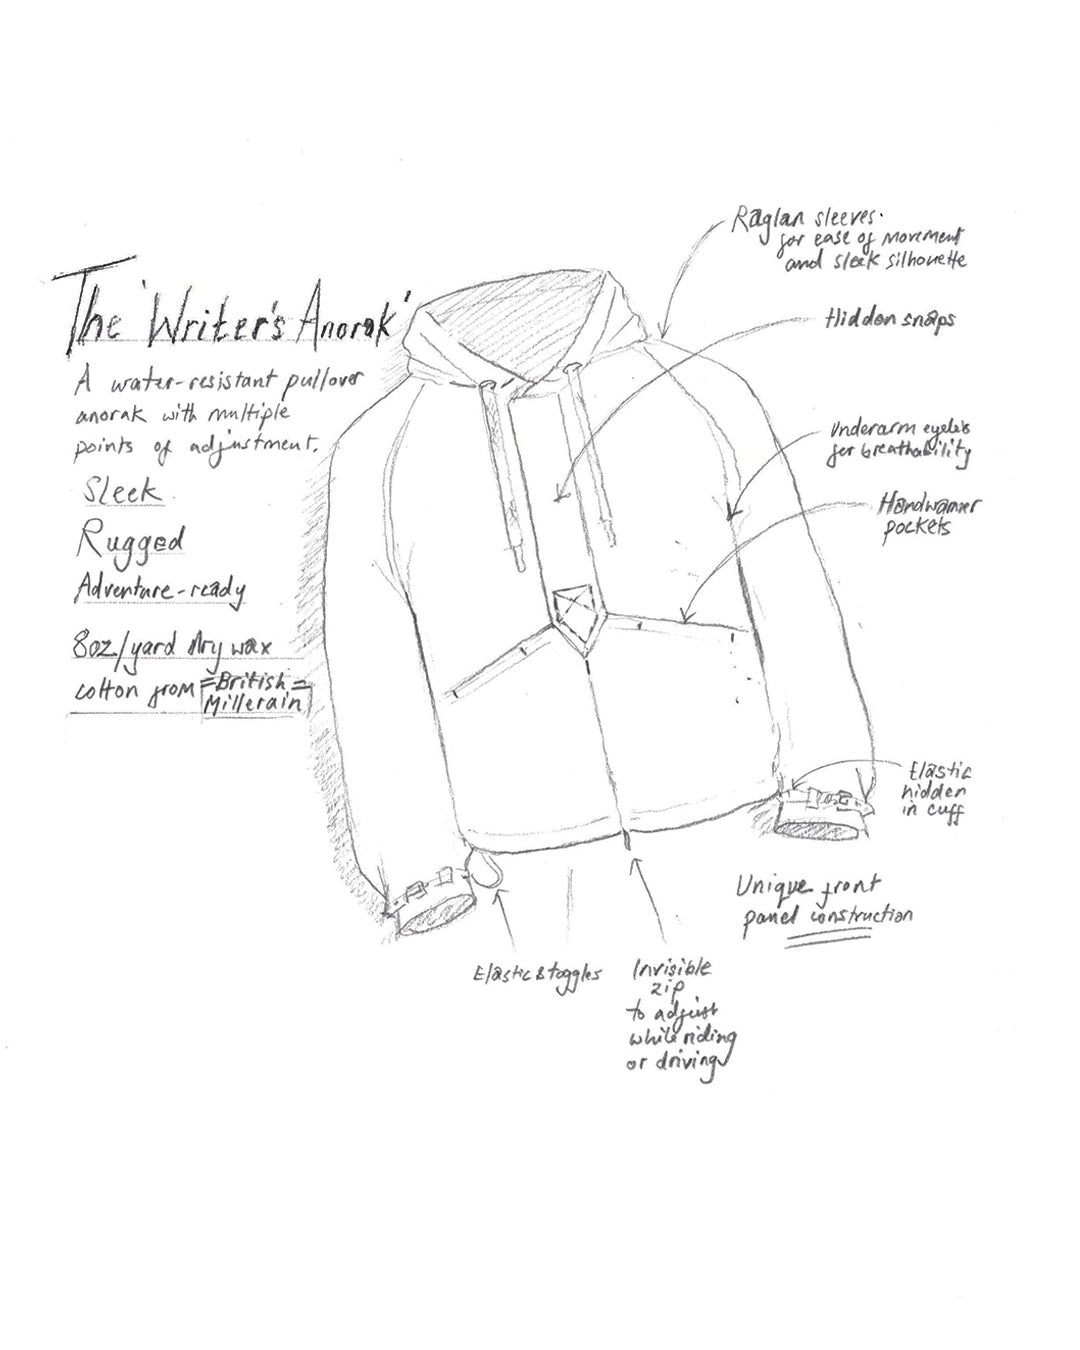 The 'Writer's Anorak'
A water-resistant pullover
anorak with multiple
points of adjustment.
Sleek
Rugged
Adventure-ready
8oz/yard dry wax
cotton from British
Millerain
Raglan sleeves.
for ease of movement
and sleek silhouette
Hidden snaps
Underarm eyelets
for breathability
Handwarmer
pockets
Elastic
hidden
in cuff
Unique front
panel construction
Elastic & toggles
Invisible
zip
to adjust
while riding
or driving